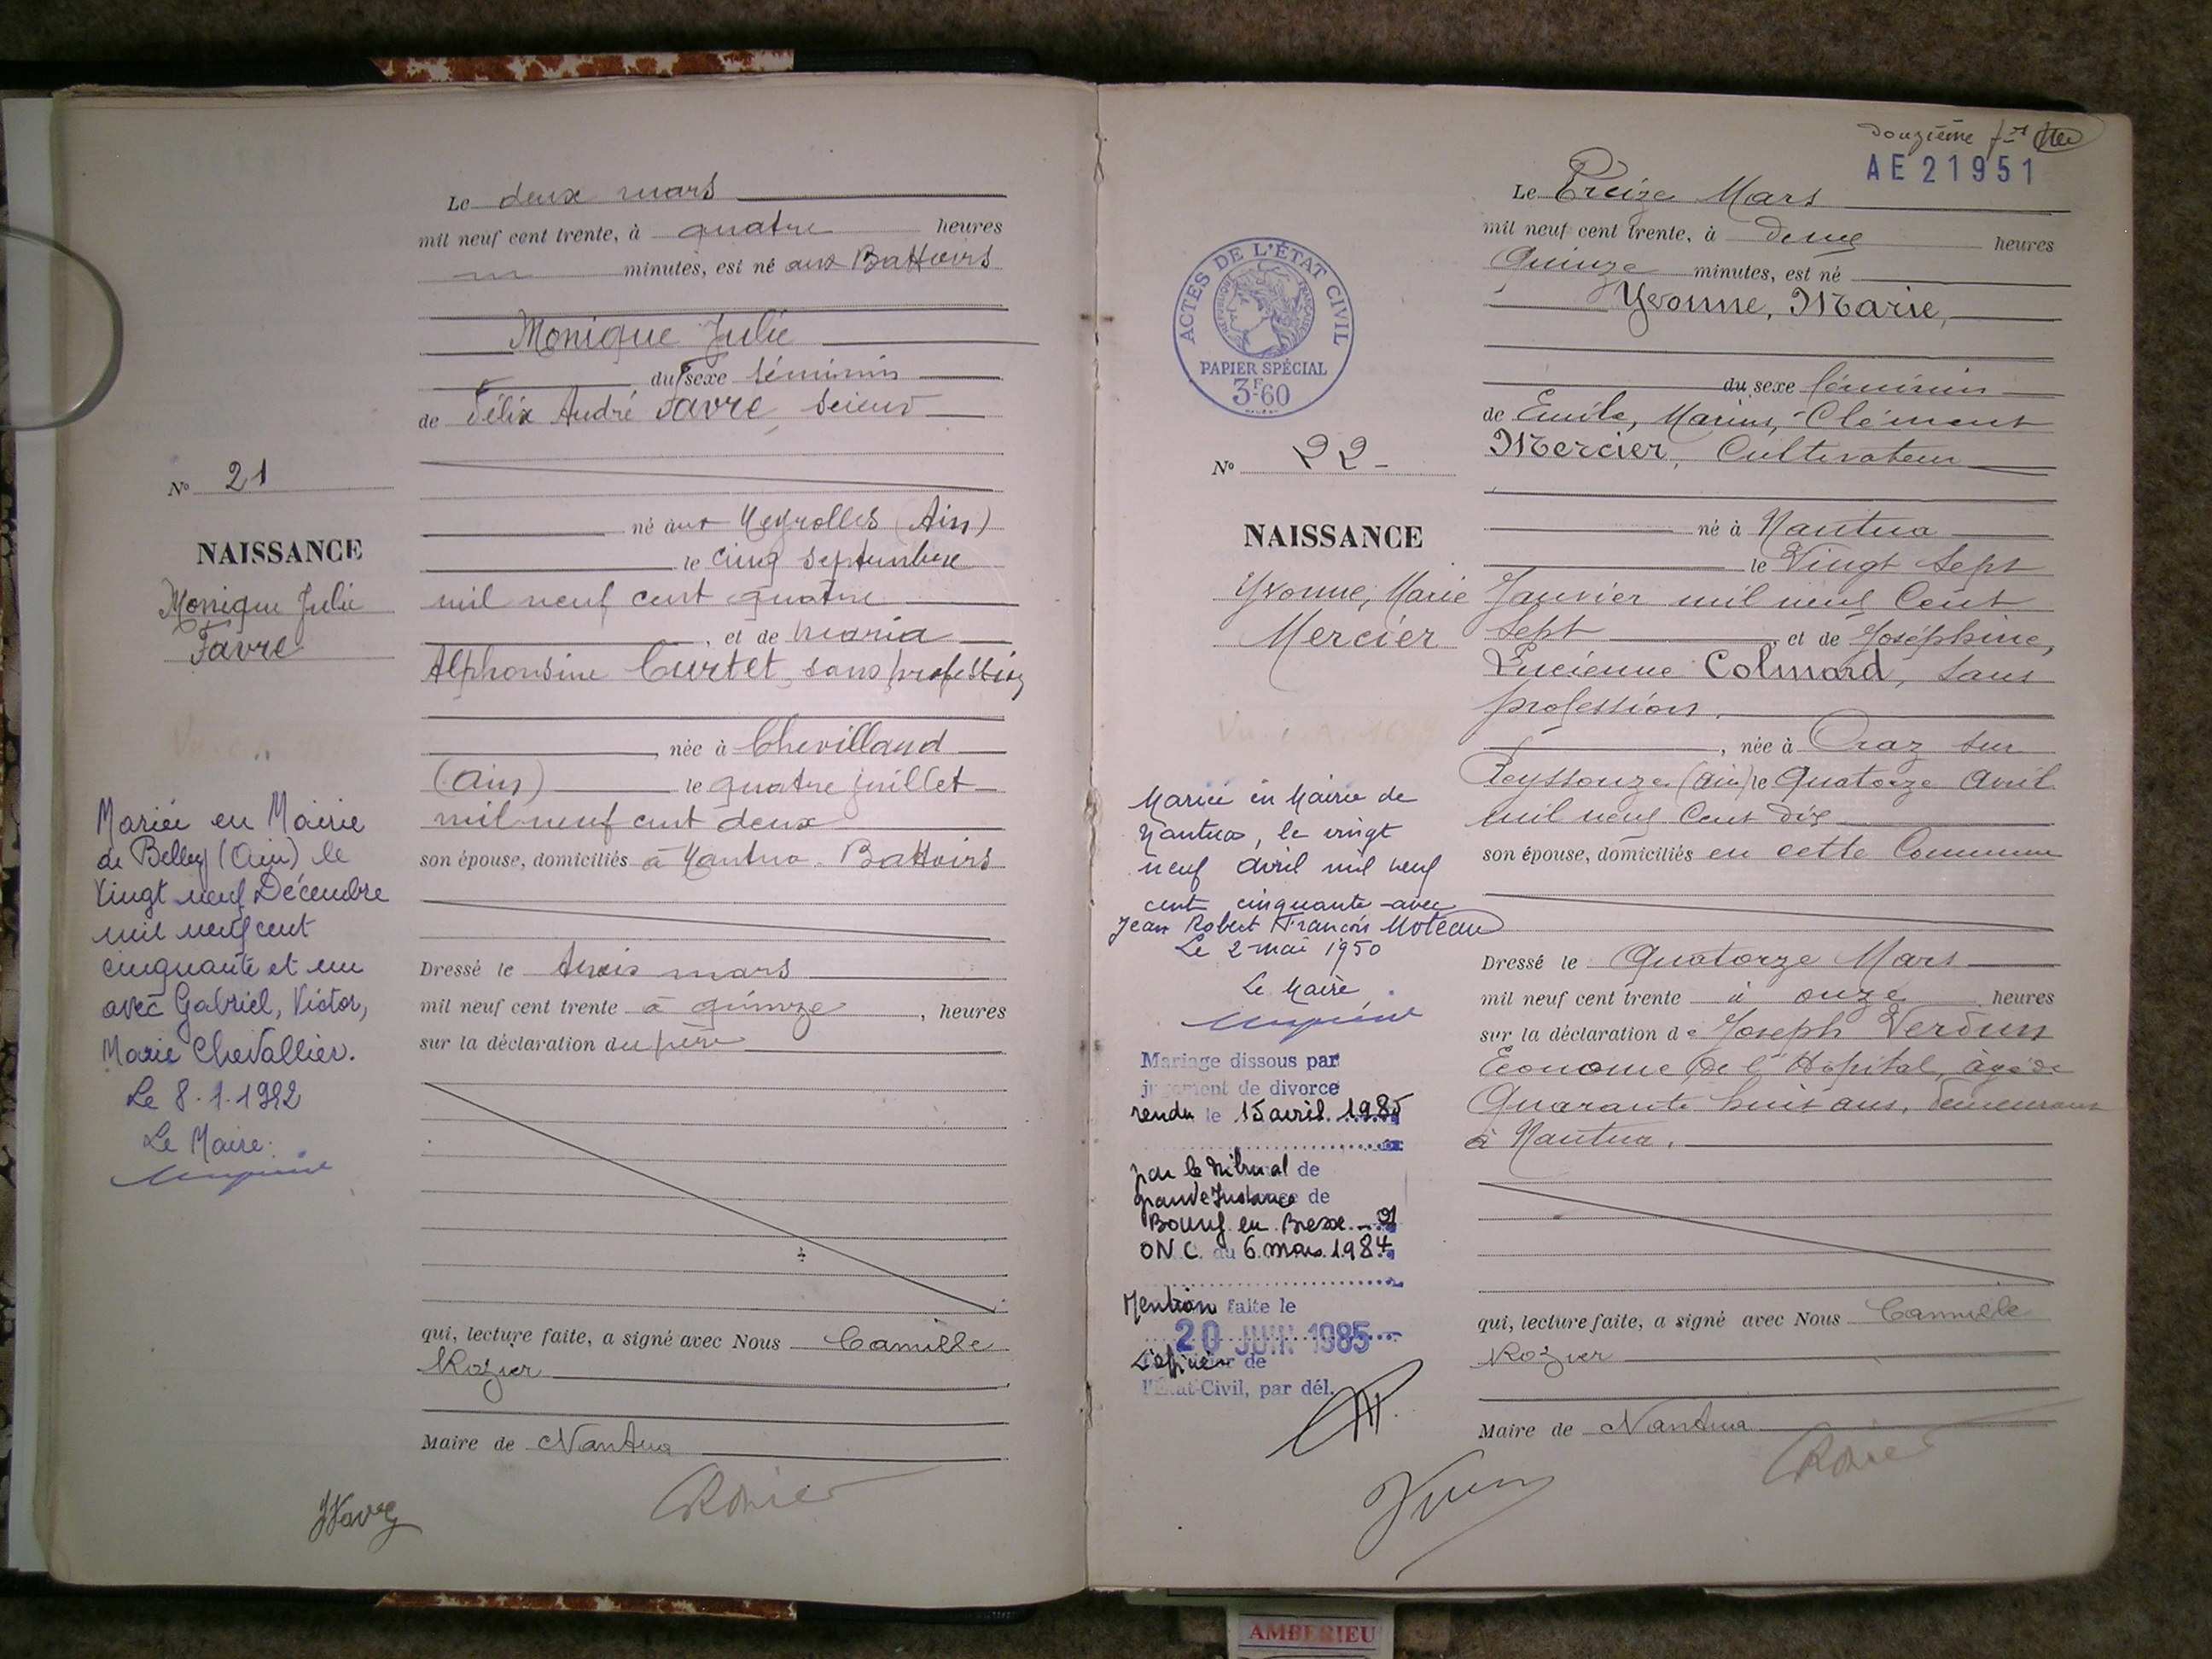 Le deux mars
mil neuf cent trente, à quatre heures
minutes, est né aux Battoirs
Monique Julie
du sexe féminin
de Félix André Favre, scieur
né aux Neyrolles (Ain)
le cinq septembre
mil neuf cent quatre
, et de Maria
Alphonsine Curtet, sans profession
, née à Chevilland
(Ain) le quatre juillet
mil neuf cent deux
son épouse, domiciliés à Nantua Battoirs
Dressé le trois mars
mil neuf cent trente à quinze, heures
sur la déclaration du père
qui, lecture faite, a signé avec Nous Camille
Rozier
Maire de Nantua
No 21
NAISSANCE
Monique Julie
Favre
Mariée en Mairie
de Belley (Ain) le
vingt neuf Décembre
mil neuf cent
cinquante et un
avec Gabriel, Victor,
Marie Chevallier.
Le 8.1.1952
Le Maire:
Favre
Rozier
douzième
AE 21951
Le Treize Mars
mil neuf cent trente, à deux heures
Quinze minutes, est né
Yvonne, Marie,
du sexe féminin
de Emile, Marius, Clément
Mercier, Cultivateur
né à Nantua
le Vingt Sept
Janvier mil neuf Cent
Sept, et de Joséphine,
Lucienne Colmard, sans
profession,
, née à Ozan sur
Reyssouze (Ain) le Quatorze Avril
mil neuf Cent Dix
son épouse, domiciliés en cette Commune
Dressé le Quatorze Mars
mil neuf cent trente à onze heures
sur la déclaration de Joseph Verdun
Econome de l'Hôpital, âgé de
Quarante huit ans, demeurant
à Nantua.
qui, lecture faite, a signé avec Nous Camille
Rozier
Maire de Nantua
ACTES DE L'ÉTAT CIVIL
RÉPUBLIQUE FRANÇAISE
PAPIER SPÉCIAL
3F60
No 22-
NAISSANCE
Yvonne, Marie
Mercier
Mariée en Mairie de
Nantua, le vingt
neuf avril mil neuf
cent cinquante avec
Jean Robert François Moteau
Le 2 mai 1950
Le Maire,
Mariage dissous par
jugement de divorce
rendu le 15 avril 1985
par le Tribunal de
grande Instance de
Bourg en Bresse
O N C. du 6 mars 1984
Mention faite le
20 JUIN 1985
L'officier de
l'État-Civil, par dél.
Rozier
AMBERIEU